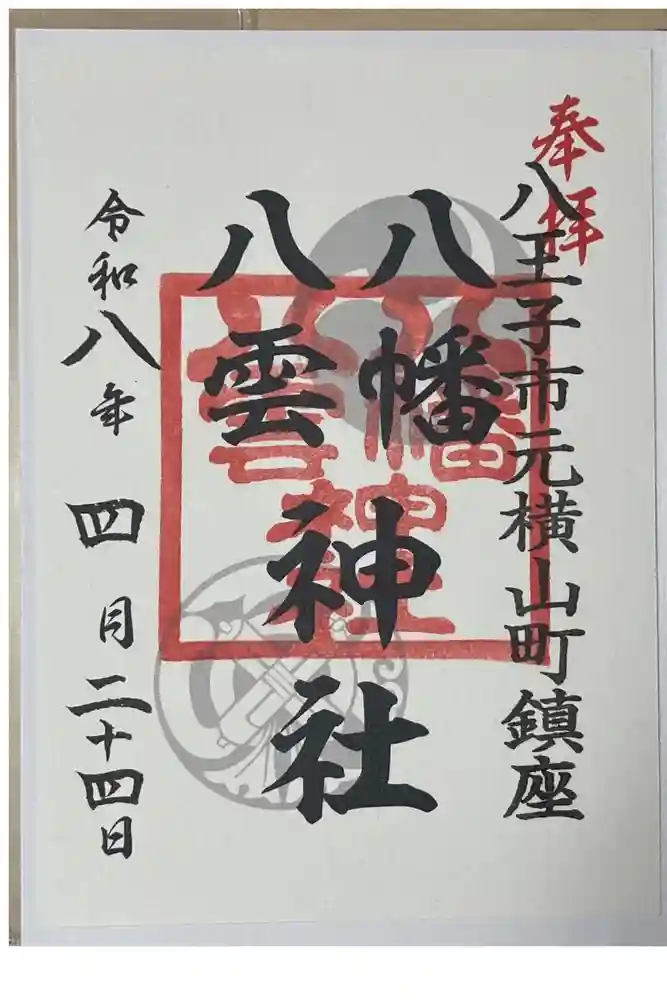 奉拝
八王子市元横山町鎮座
八幡
八雲
神社
八幡
八雲
神社
令和八年四月二十四日